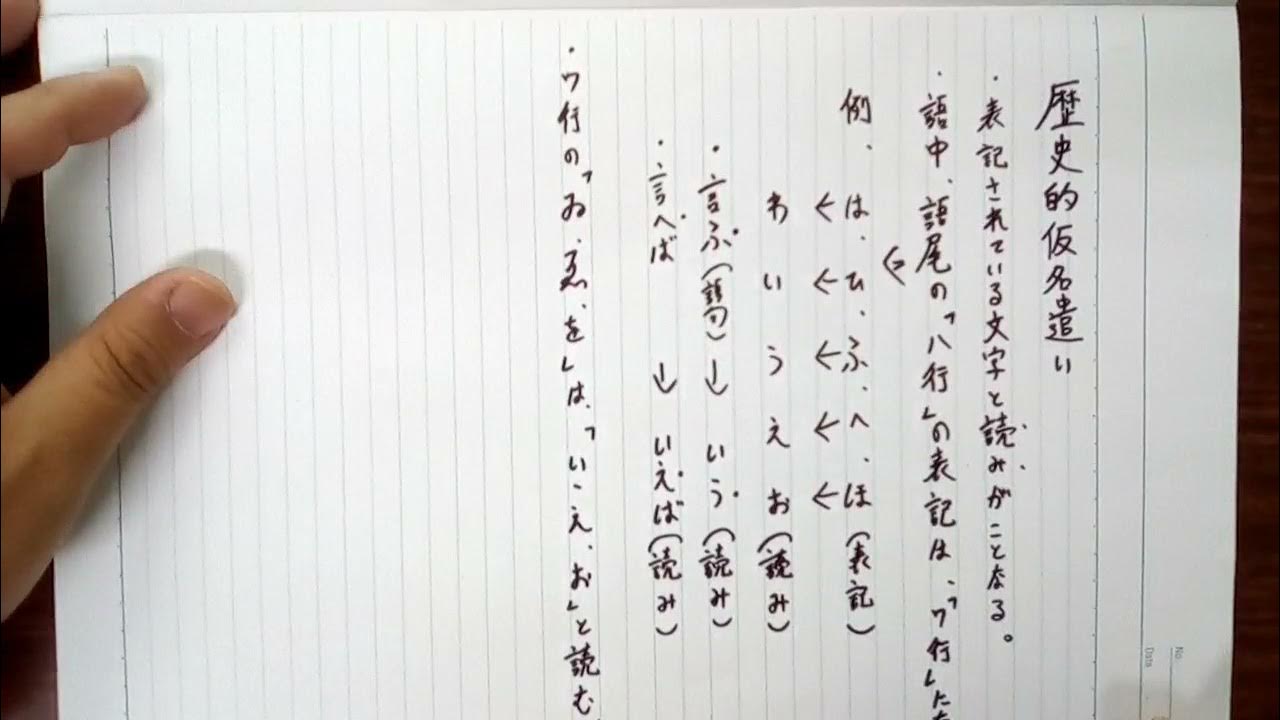 歴史的仮名遣い
・表記されている文字と読みがことなる。
・語中、語尾の「ハ行」の表記は、「ワ行」にな
例、は、ひ、ふ、へ、ほ（表記）
↓ ↓ ↓ ↓ ↓
わ い う え お（読み）
・言ふ（語句）→ いう（読み）
・言へば → いえば（読み）
・ワ行の「ゐ、ゑ、を」は、「い、え、お」と読む
No.
Date